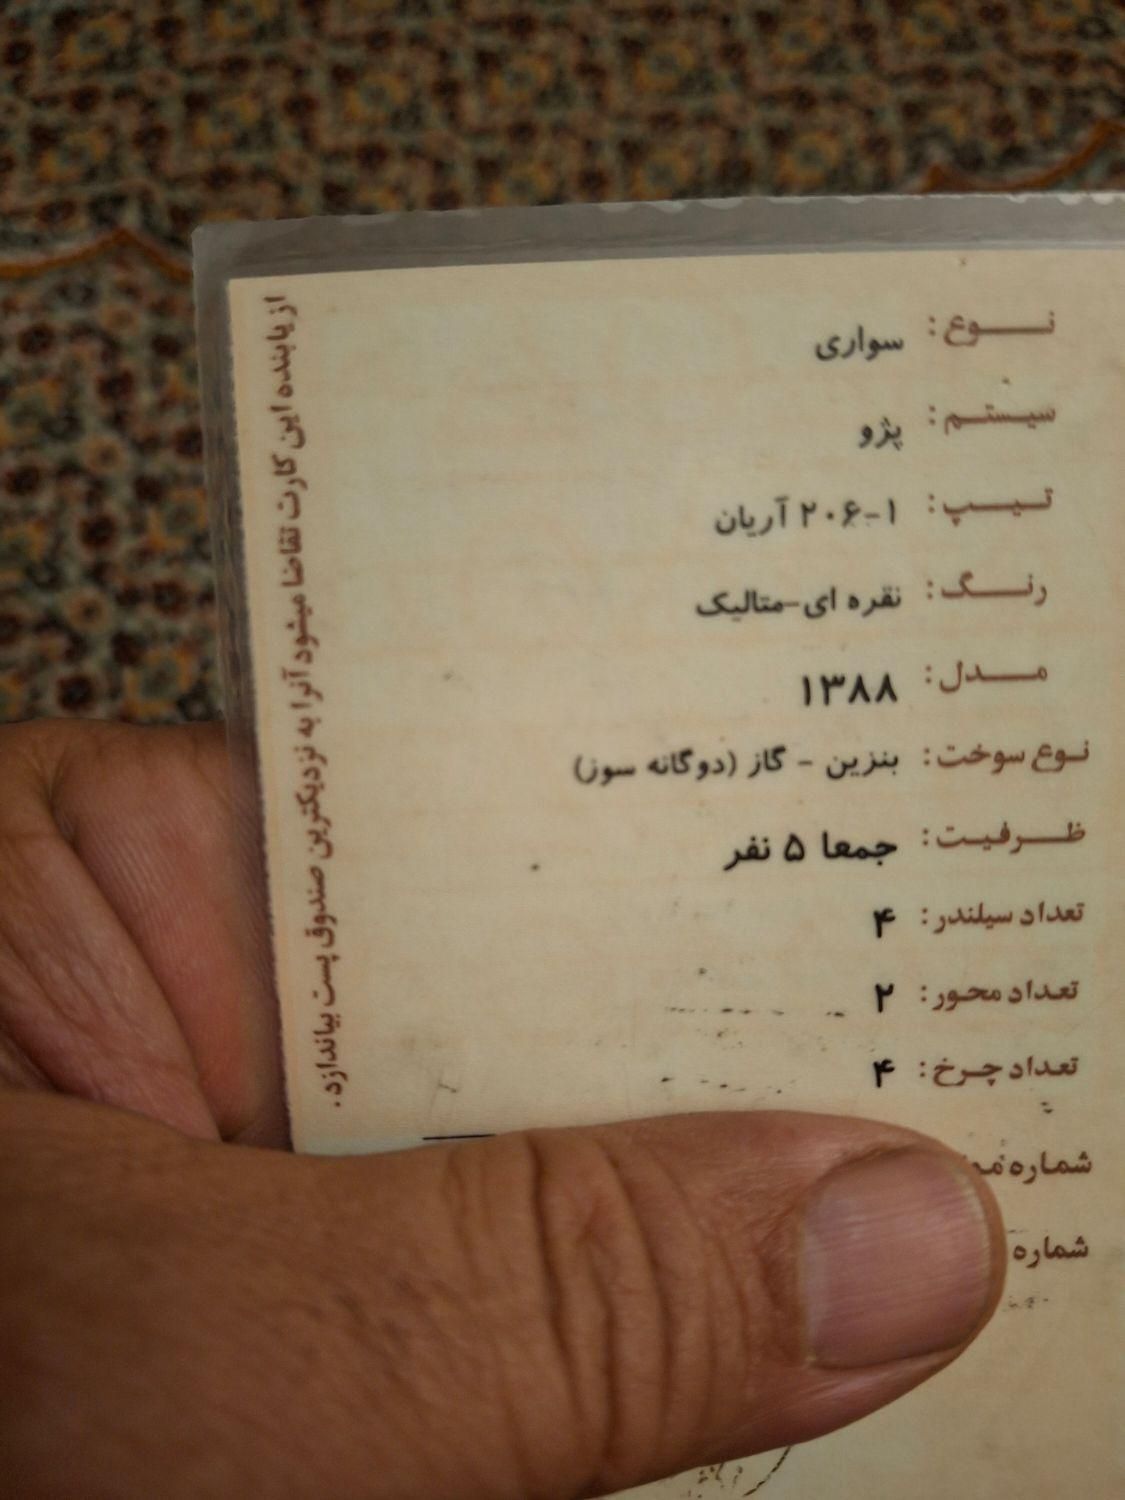 نوع: سواری
سیستم: پژو
تیپ: ۲۰۶-۱ آریان
رنگ: نقره ای-متالیک
مدل: ۱۳۸۸
نوع سوخت: بنزین - گاز (دوگانه سوز)
ظرفیت: جمعا ۵ نفر
تعداد سیلندر: ۴
تعداد محور: ۲
تعداد چرخ: ۴
شماره
شماره
از یابنده این کارت تقاضا میشود آنرا به نزدیکترین صندوق پست بیاندازد.